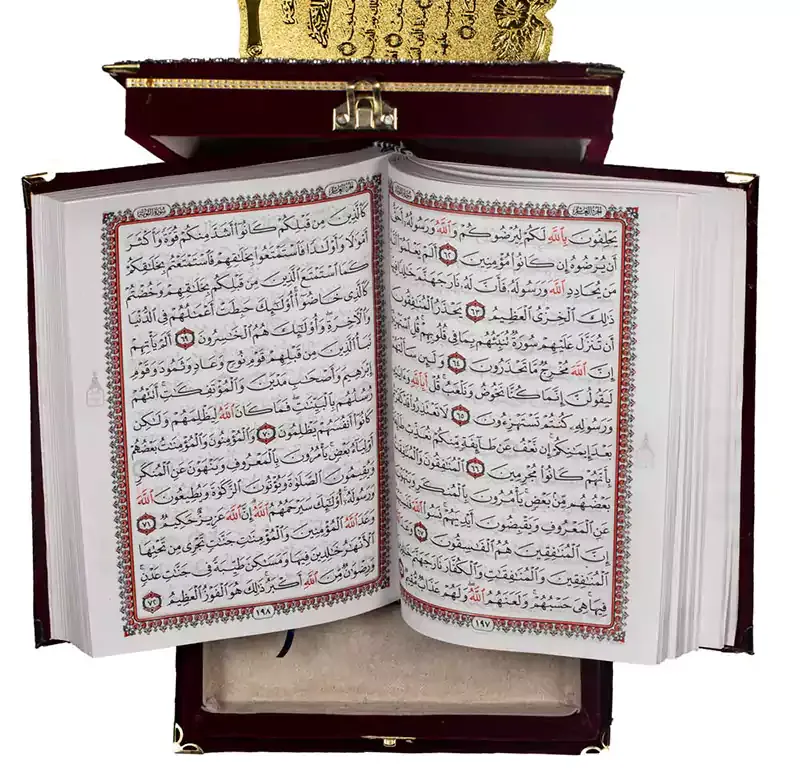 الجزء العاشر
يَحْلِفُونَ بِٱللَّهِ لَكُمْ لِيُرْضُوكُمْ وَٱللَّهُ وَرَسُولُهُۥٓ أَحَقُّ
أَن يُرْضُوهُ إِن كَانُوا۟ مُؤْمِنِينَ ٦٢ أَلَمْ يَعْلَمُوٓا۟
مَن يُحَادِدِ ٱللَّهَ وَرَسُولَهُۥ فَأَنَّ لَهُۥ نَارَ جَهَنَّمَ خَٰلِدًا فِيهَا
ذَٰلِكَ ٱلْخِزْىُ ٱلْعَظِيمُ ٦٣ يَحْذَرُ ٱلْمُنَٰفِقُونَ
أَن تُنَزَّلَ عَلَيْهِمْ سُورَةٌ تُنَبِّئُهُم بِمَا فِى قُلُوبِهِمْ قُلِ
إِنَّ ٱللَّهَ مُخْرِجٌ مَّا تَحْذَرُونَ ٦٤ وَلَئِن سَأَلْتَهُمْ
لَيَقُولُنَّ إِنَّمَا كُنَّا نَخُوضُ وَنَلْعَبُ قُلْ أَبِٱللَّهِ
وَرَسُولِهِۦ كُنتُمْ تَسْتَهْزِءُونَ ٦٥ لَا تَعْتَذِرُوا۟
بَعْدَ إِيمَٰنِكُمْ إِن نَّعْفُ عَن طَآئِفَةٍ مِّنكُمْ نُعَذِّبْ
بِأَنَّهُمْ كَانُوا۟ مُجْرِمِينَ ٦٦ ٱلْمُنَٰفِقُونَ
بَعْضُهُم مِّنۢ بَعْضٍ يَأْمُرُونَ بِٱلْمُنكَرِ
عَنِ ٱلْمَعْرُوفِ وَيَقْبِضُونَ أَيْدِيَهُمْ نَسُوا۟ ٱللَّهَ
إِنَّ ٱلْمُنَٰفِقِينَ هُمُ ٱلْفَٰسِقُونَ ٦٧
ٱلْمُنَٰفِقِينَ وَٱلْمُنَٰفِقَٰتِ وَٱلْكُفَّارَ نَارَ جَهَنَّمَ
فِيهَا هِىَ حَسْبُهُمْ وَلَعَنَهُمُ ٱللَّهُ وَلَهُمْ عَذَابٌ مُّقِيمٌ
١٩٧
الجزء العاشر
سورة التوبة
كَٱلَّذِينَ مِن قَبْلِكُمْ كَانُوٓا۟ أَشَدَّ مِنكُمْ قُوَّةً وَأَكْثَرَ
أَمْوَٰلًا وَأَوْلَٰدًا فَٱسْتَمْتَعُوا۟ بِخَلَٰقِهِمْ فَٱسْتَمْتَعْتُم بِخَلَٰقِكُمْ
كَمَا ٱسْتَمْتَعَ ٱلَّذِينَ مِن قَبْلِكُم بِخَلَٰقِهِمْ وَخُضْتُمْ
كَٱلَّذِى خَاضُوٓا۟ أُو۟لَٰٓئِكَ حَبِطَتْ أَعْمَٰلُهُمْ فِى ٱلدُّنْيَا
وَٱلْءَاخِرَةِ وَأُو۟لَٰٓئِكَ هُمُ ٱلْخَٰسِرُونَ ٦٩ أَلَمْ يَأْتِهِمْ
نَبَأُ ٱلَّذِينَ مِن قَبْلِهِمْ قَوْمِ نُوحٍ وَعَادٍ وَثَمُودَ وَقَوْمِ
إِبْرَٰهِيمَ وَأَصْحَٰبِ مَدْيَنَ وَٱلْمُؤْتَفِكَٰتِ أَتَتْهُمْ
رُسُلُهُم بِٱلْبَيِّنَٰتِ فَمَا كَانَ ٱللَّهُ لِيَظْلِمَهُمْ وَلَٰكِن
كَانُوٓا۟ أَنفُسَهُمْ يَظْلِمُونَ ٧٠ وَٱلْمُؤْمِنُونَ وَٱلْمُؤْمِنَٰتُ بَعْضُهُمْ
أَوْلِيَآءُ بَعْضٍ يَأْمُرُونَ بِٱلْمَعْرُوفِ وَيَنْهَوْنَ عَنِ ٱلْمُنكَرِ
وَيُقِيمُونَ ٱلصَّلَوٰةَ وَيُؤْتُونَ ٱلزَّكَوٰةَ وَيُطِيعُونَ ٱللَّهَ
وَرَسُولَهُۥٓ أُو۟لَٰٓئِكَ سَيَرْحَمُهُمُ ٱللَّهُ إِنَّ ٱللَّهَ عَزِيزٌ حَكِيمٌ ٧١
وَعَدَ ٱللَّهُ ٱلْمُؤْمِنِينَ وَٱلْمُؤْمِنَٰتِ جَنَّٰتٍ تَجْرِى مِن تَحْتِهَا
ٱلْأَنْهَٰرُ خَٰلِدِينَ فِيهَا وَمَسَٰكِنَ طَيِّبَةً فِى جَنَّٰتِ عَدْنٍ
وَرِضْوَٰنٌ مِّنَ ٱللَّهِ أَكْبَرُ ذَٰلِكَ هُوَ ٱلْفَوْزُ ٱلْعَظِيمُ ٧٢
١٩٨